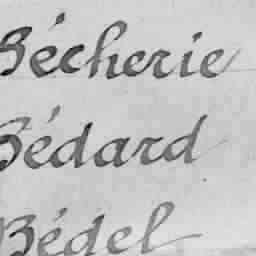 Bécherie
Bédard
Bédel